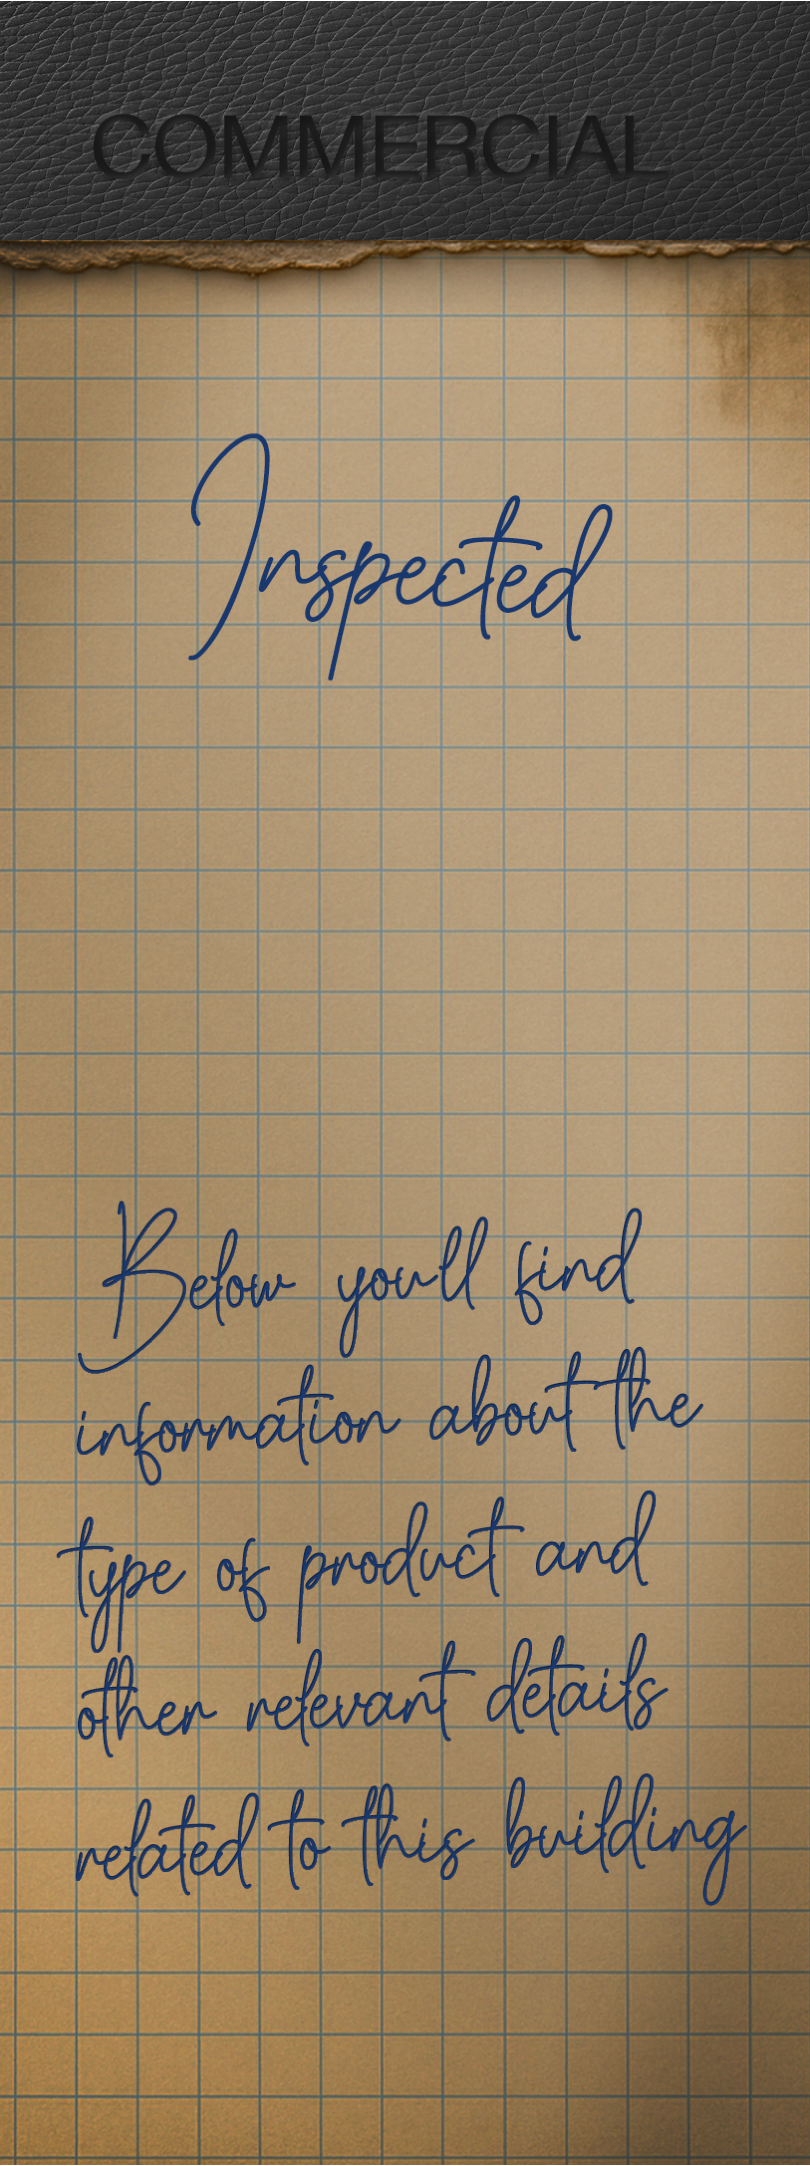 COMMERCIAL
Inspected
Below you'll find
information about the
type of product and
other relevant details
related to this building